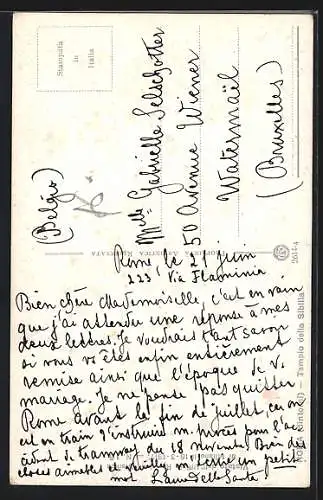 Stampata
in
Italia
Mlle Gabrielle Selschotter
50 Avenue Wiener
Watermaël
(Bruxelles)
(Belgio)
2654-4
Rome, le 21 Juin
223, Via Flaminia
Bien chère Mademoiselle, c'est en vain
que j'ai attendu une réponse à mes
deux lettres. Je voudrais tant savoir
si vous vous êtes enfin entièrement
remise ainsi que l'époque de v.
mariage. Je ne pense pas quitter
Rome avant la fin de juillet, car on
est en train d'instruire m. procès pour l'acci
cident de tramway du 18 novembre. Bien des
choses aimables et veuillez m'écrire un petit
mot
Tempio della Sibilla